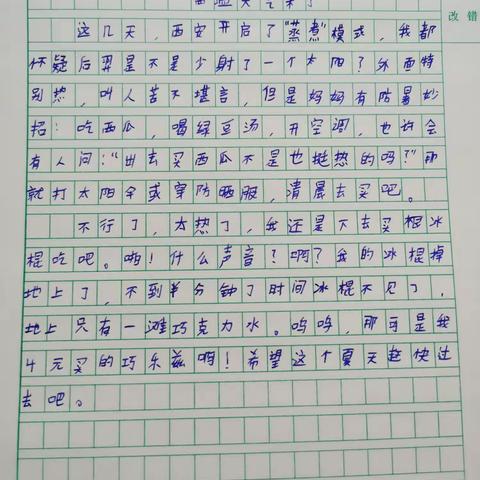 高温天气来了
改 错
这几天，西安开启了“蒸煮”模式，我都
怀疑后羿是不是少射了一个太阳？外面特
别热，叫人苦不堪言，但是妈妈有防暑妙
招：吃西瓜，喝绿豆汤，开空调，也许会
有人问：“出去买西瓜不是也挺热的吗？”那
就打太阳伞或穿防晒服，清晨去买吧。
不行了，太热了，我还是下去买根冰
棍吃吧。啪！什么声音？啊？我的冰棍掉
地上了，不到半分钟了时间冰棍不见了，
地上只有一滩巧克力水。呜呜，那可是我
4元买的巧乐兹啊！希望这个夏天赶快过
去吧。